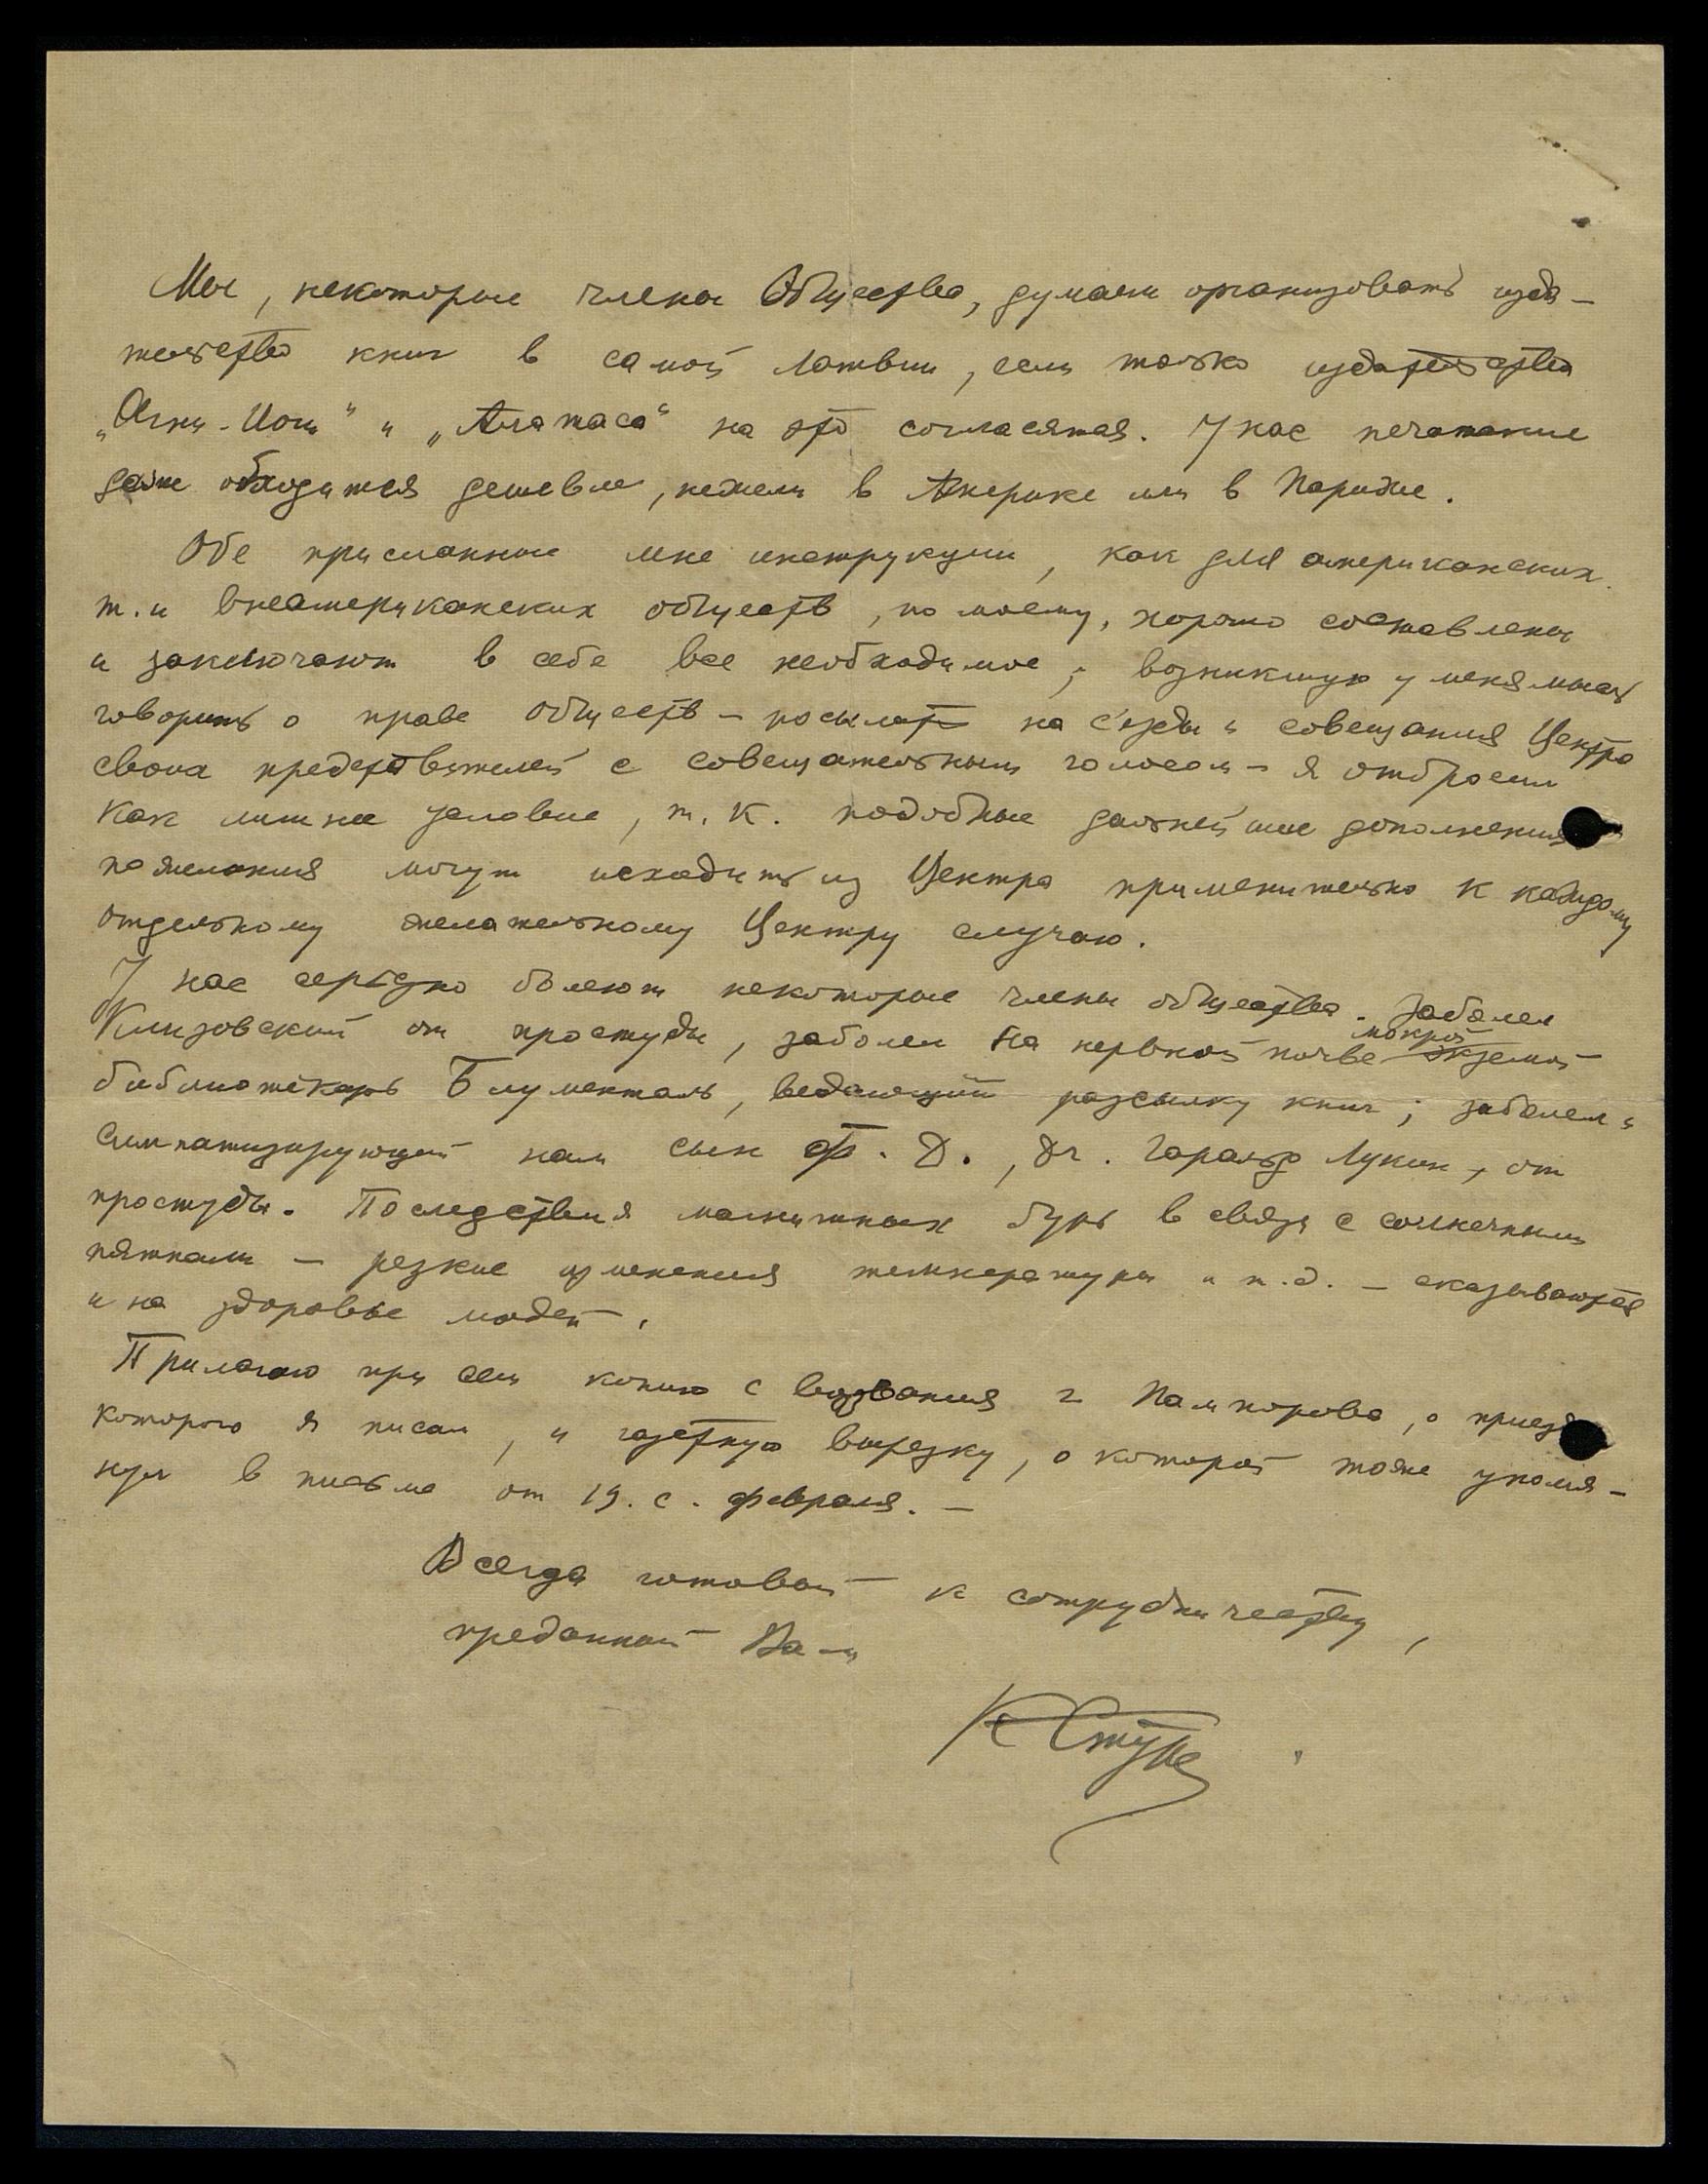 Мы, некоторые члены Общества, думаем организовать изда-
тельство книг в самой Латвии, если только издательства
„Агни-Иоги" и „Алатаса" на это согласятся. У нас печатание
даже обходится дешевле, нежели в Америке или в Париже.
Обе присланные мне инструкции, как для американских,
т. и внеамериканских обществ, по моему, хорошо составлены
и заключают в себе все необходимое; возникшую у меня мысль
говорить о праве обществ – посылать на с'езды и совещания Центра
своих представителей с совещательным голосом – я отбросил
как лишнее условие, т. к. подобные дальнейшие дополнения
пожелания могут исходить из Центра применительно к каждому
отдельному желательному Центру случаю.
У нас серьезно болеют некоторые члены общества. Заболел
Клизовский от простуды, заболел на нервной почве мокрой экземой
библиотекарь Блументаль, ведающий разсылку книг; заболел и
симпатизирующий нам сын Ф. Д., Др. Гаральд Лукин, от
простуды. Последствия магнитных бурь в связи с солнечными
пятнами – резкие изменения температуры и т. д. – сказываются
и на здоровье людей.
Прилагаю при сем копию с воззвания г. Пампорова, о приезде
которого я писал, и газетную вырезку, о которой тоже упомя-
нул в письме от 19. с. февраля. –
Всегда готовый к сотрудничеству,
преданный Вам
К Стуре